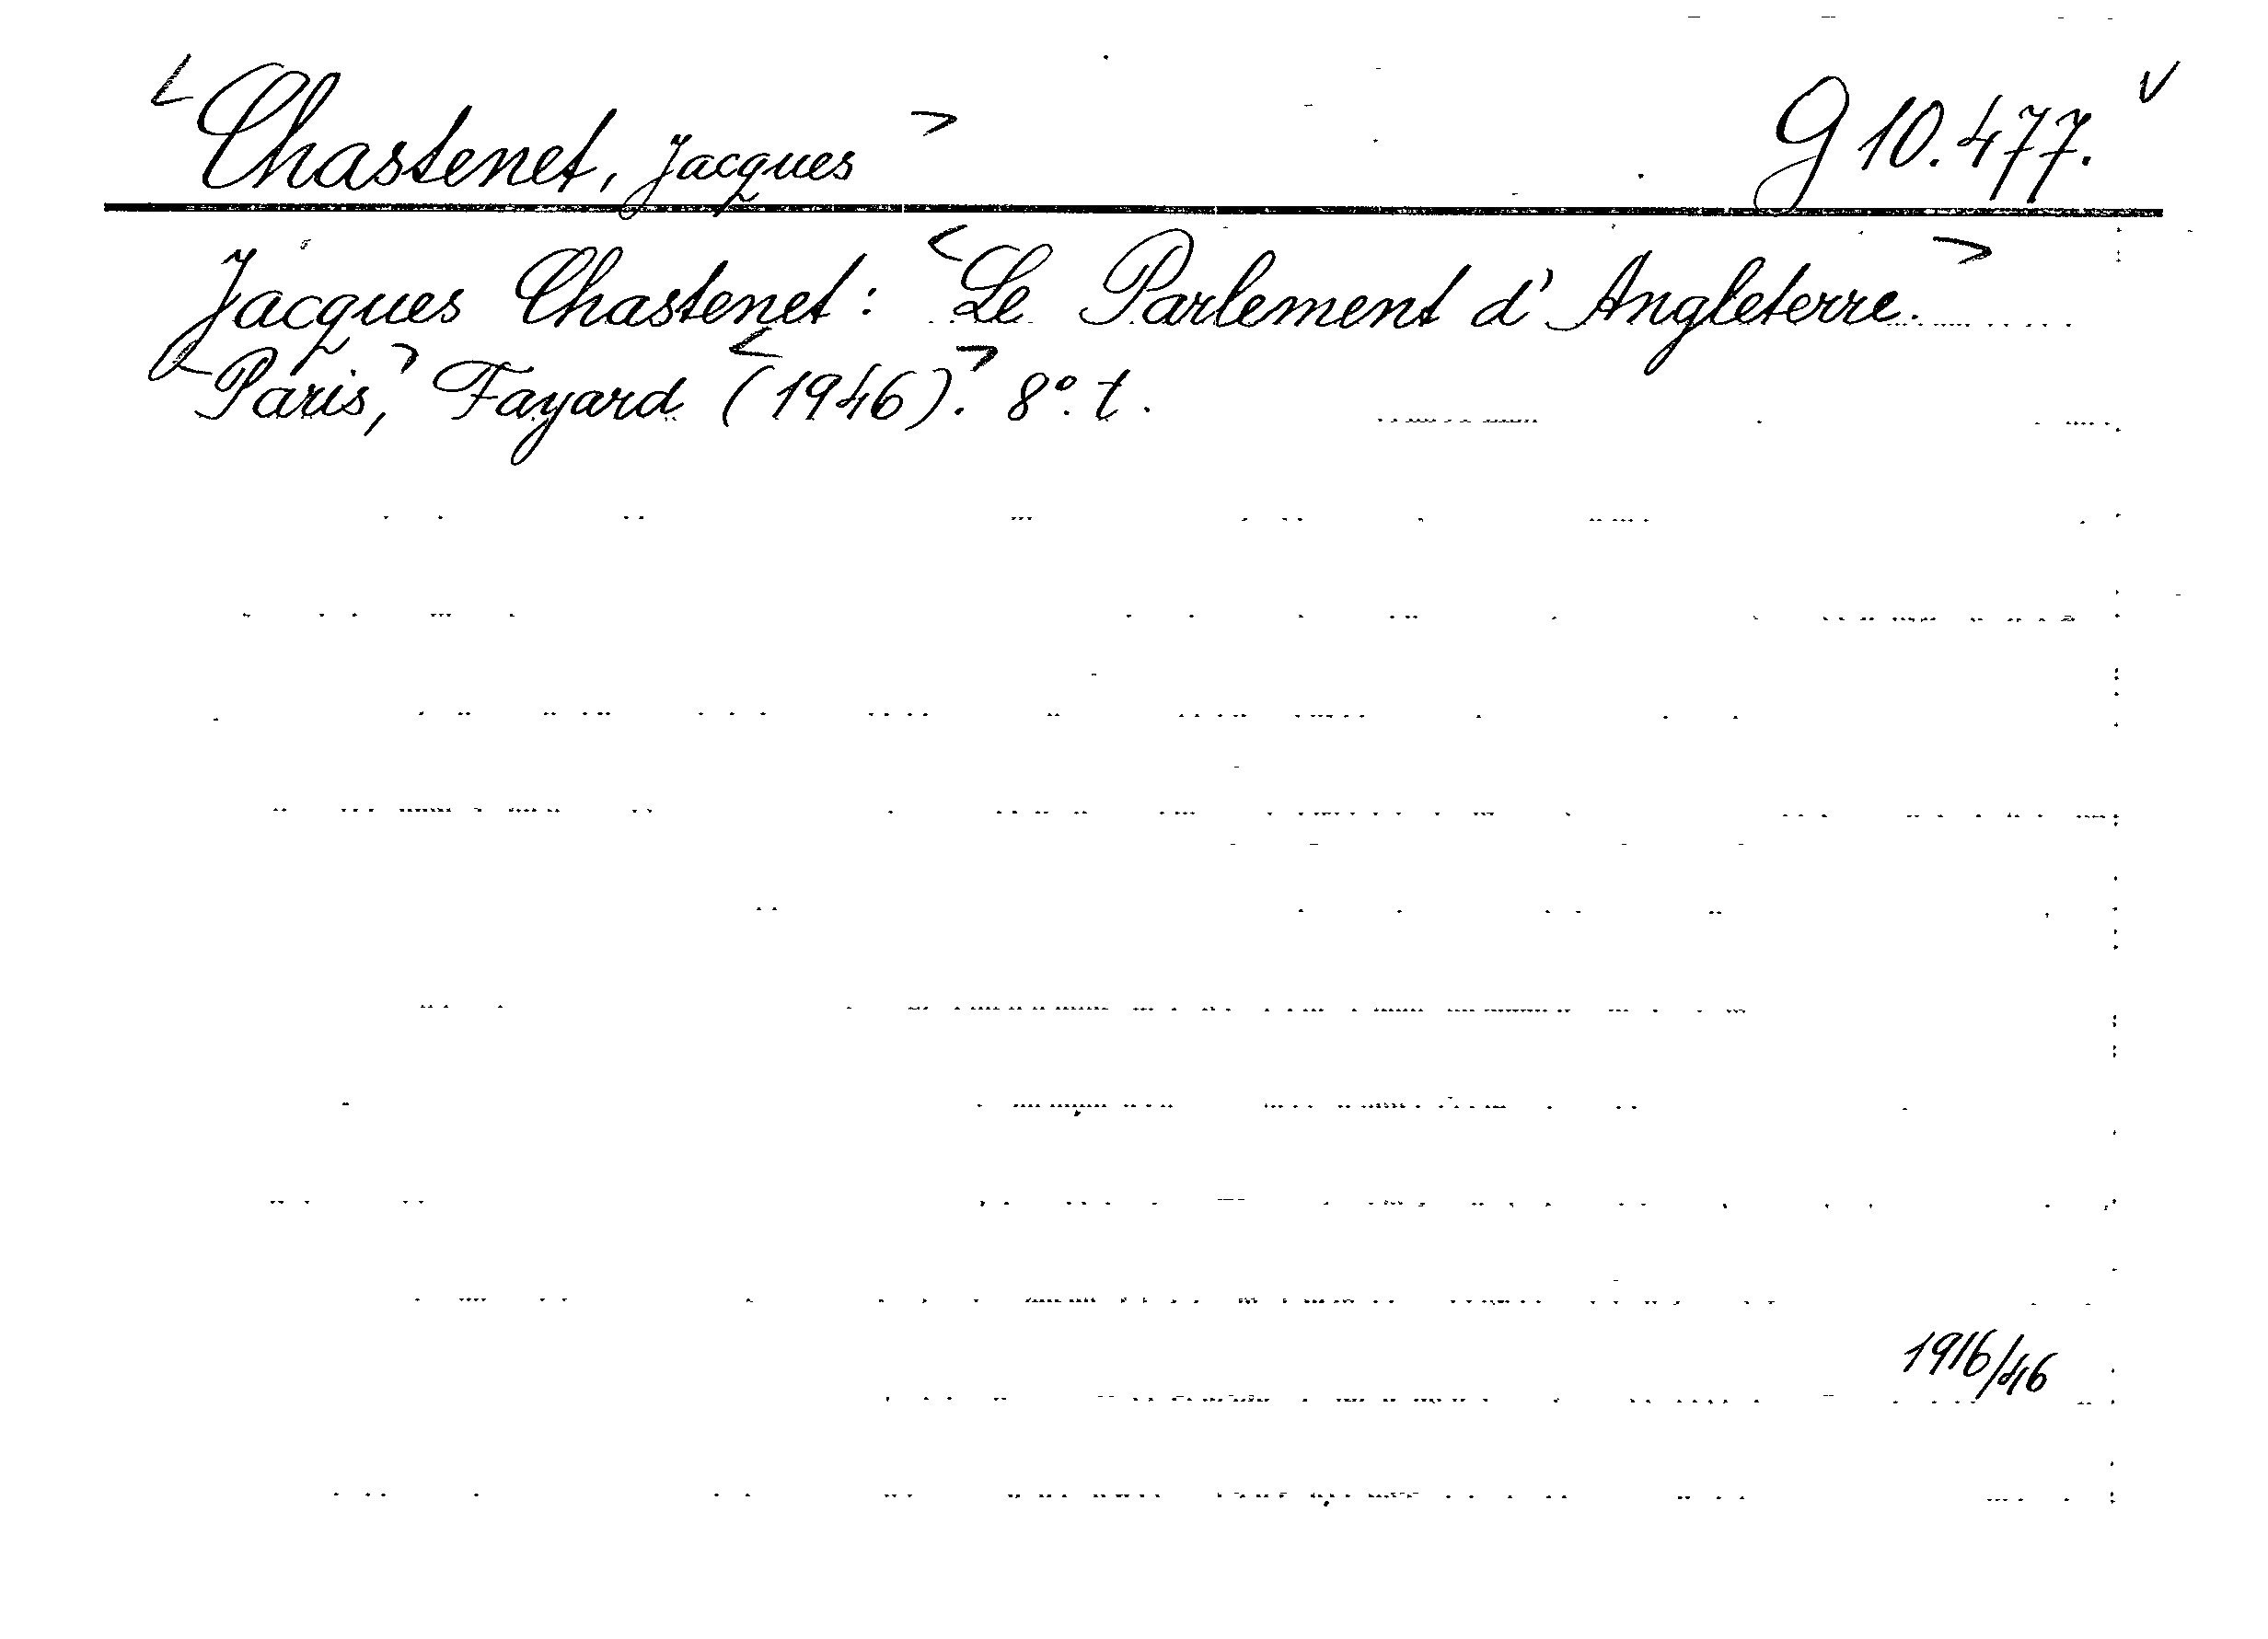 <Chastenet, Jacques> G 10.477. ✓
Jacques Chastenet: <Le Parlement d'Angleterre.>
<Paris,> Fayard <(1946).> 8º. t.
1916/46